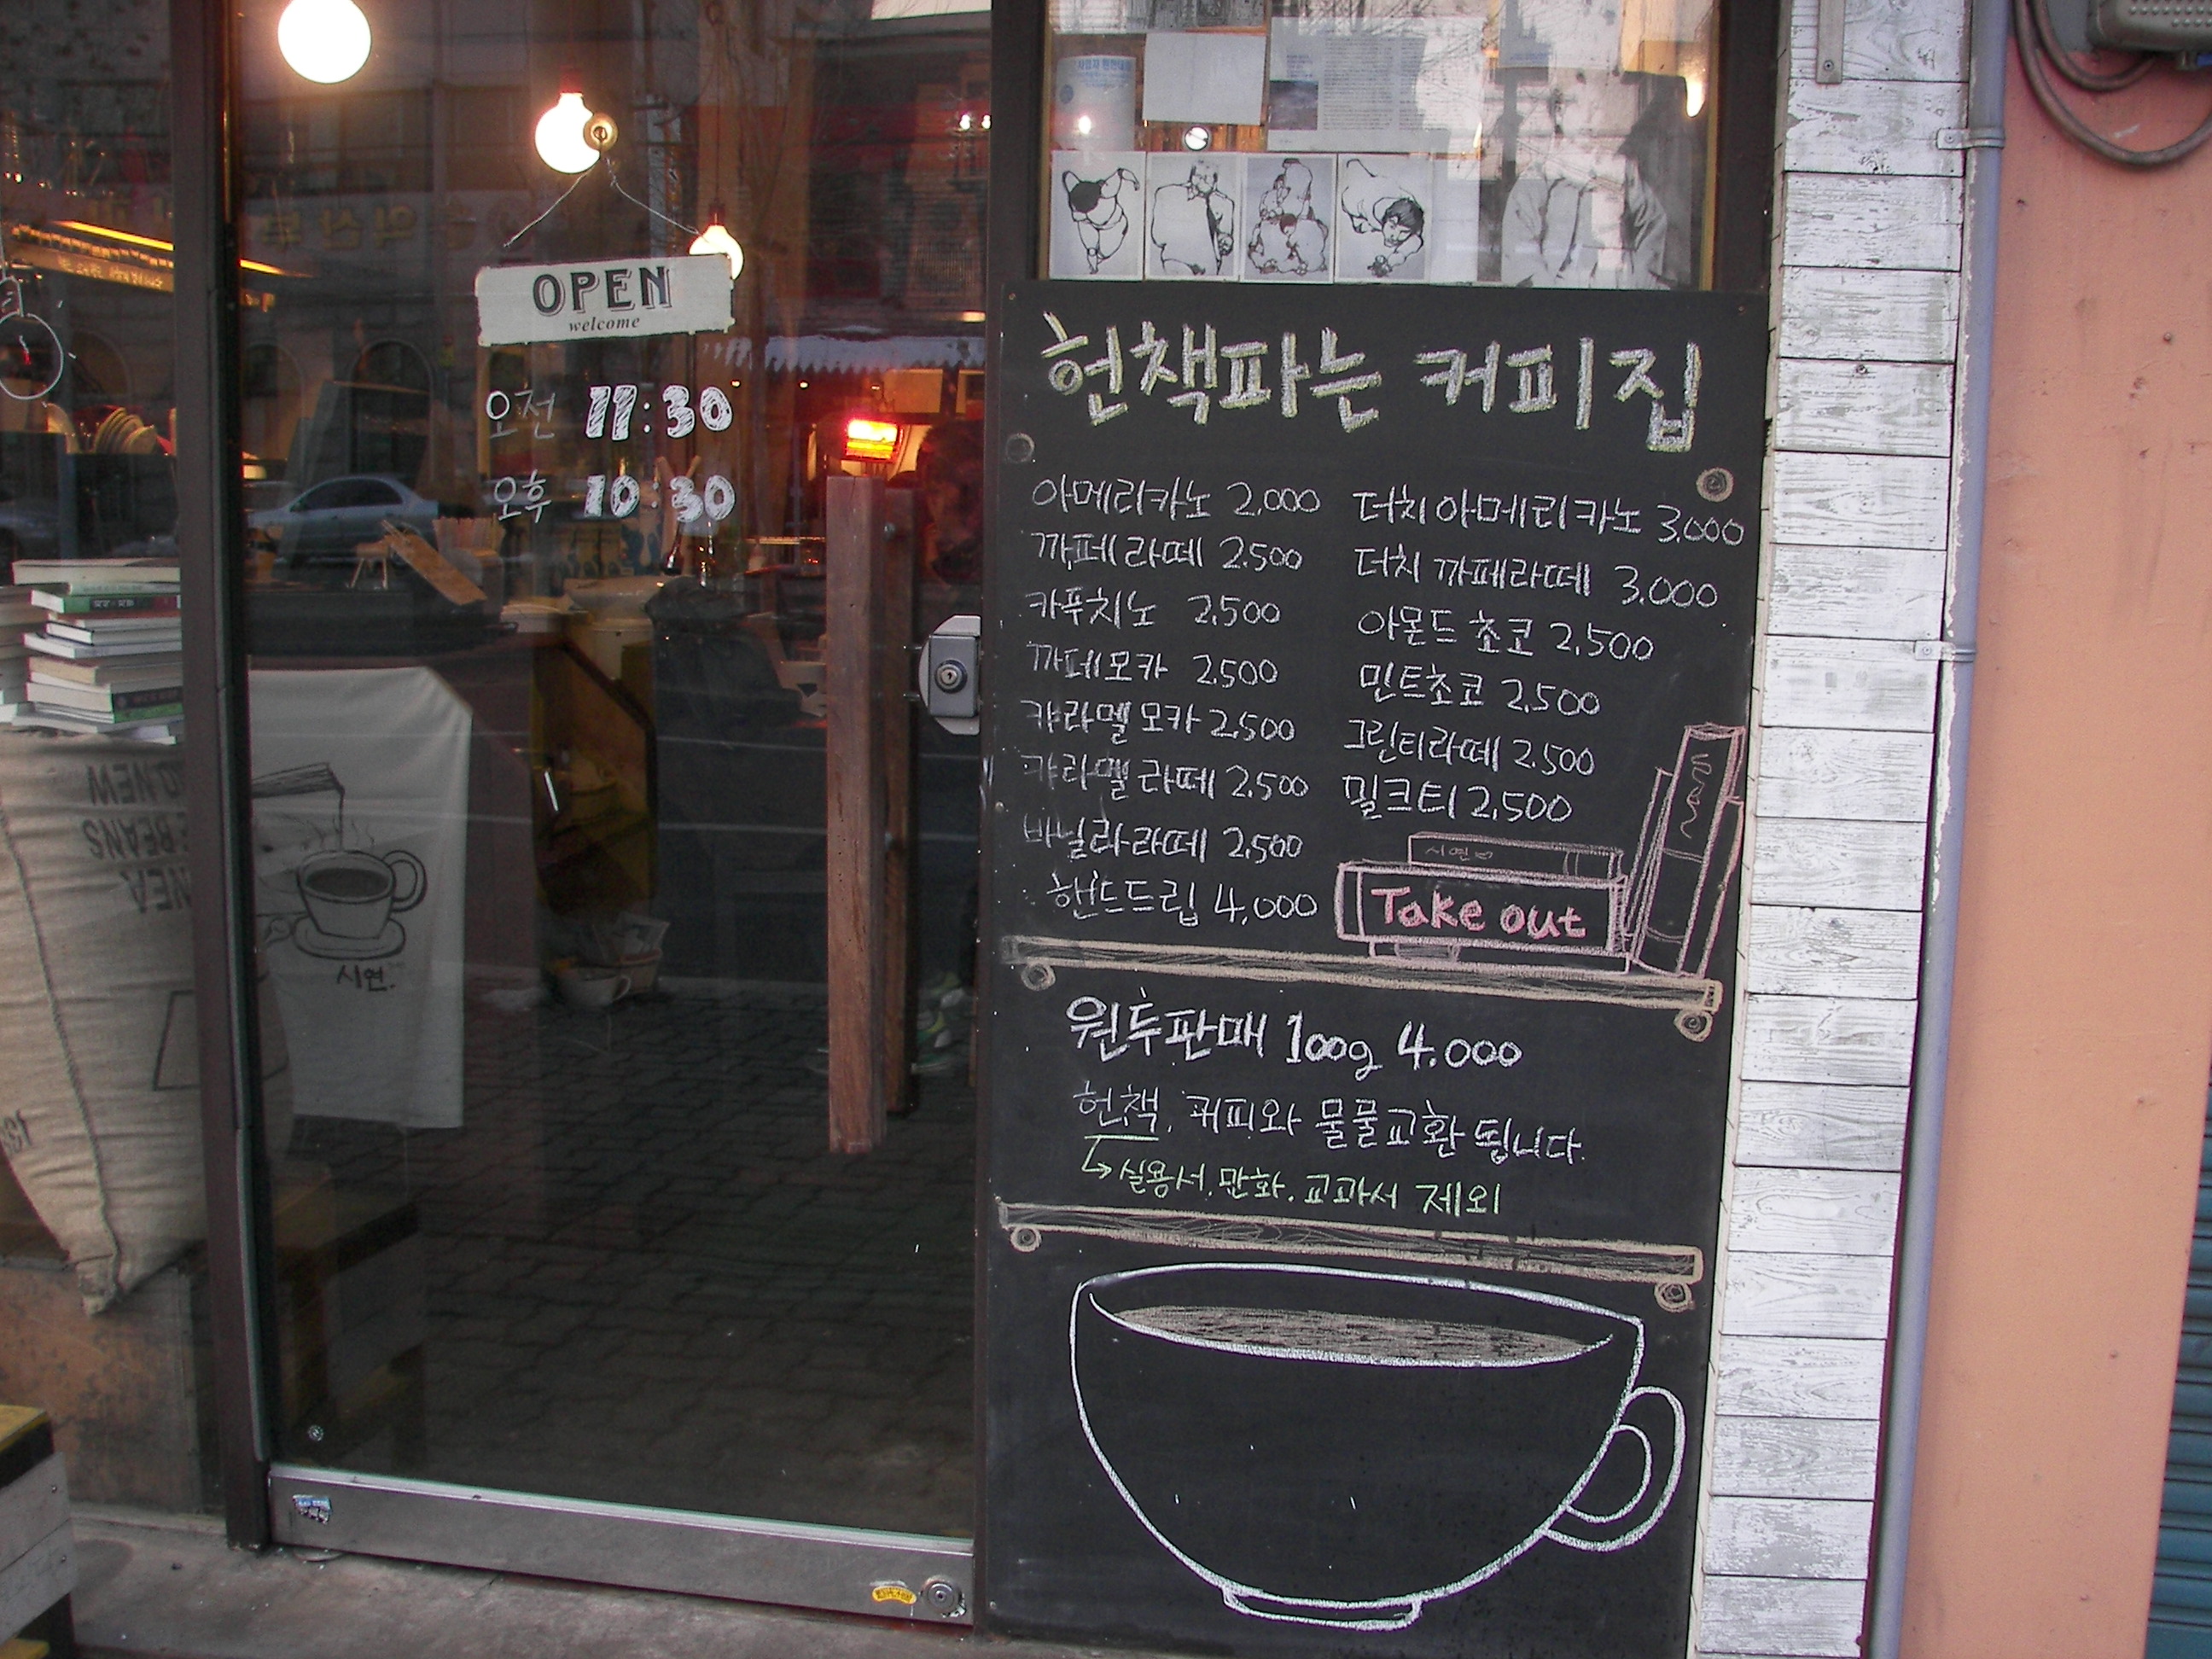 OPEN
welcome
오전 11:30
오후 10:30
NEW
BEANS
시연.
헌책파는 커피집
아메리카노 2,000
까페라떼 2,500
카푸치노 2,500
까페모카 2,500
캬라멜모카 2,500
캬라멜라떼 2,500
바닐라라떼 2,500
핸드드립 4,000
더치아메리카노 3,000
더치까페라떼 3,000
아몬드초코 2,500
민트초코 2,500
그린티라떼 2,500
밀크티 2,500
시연
Take out
원두판매 100g 4,000
헌책, 커피와 물물교환 됩니다.
실용서, 만화, 교과서 제외